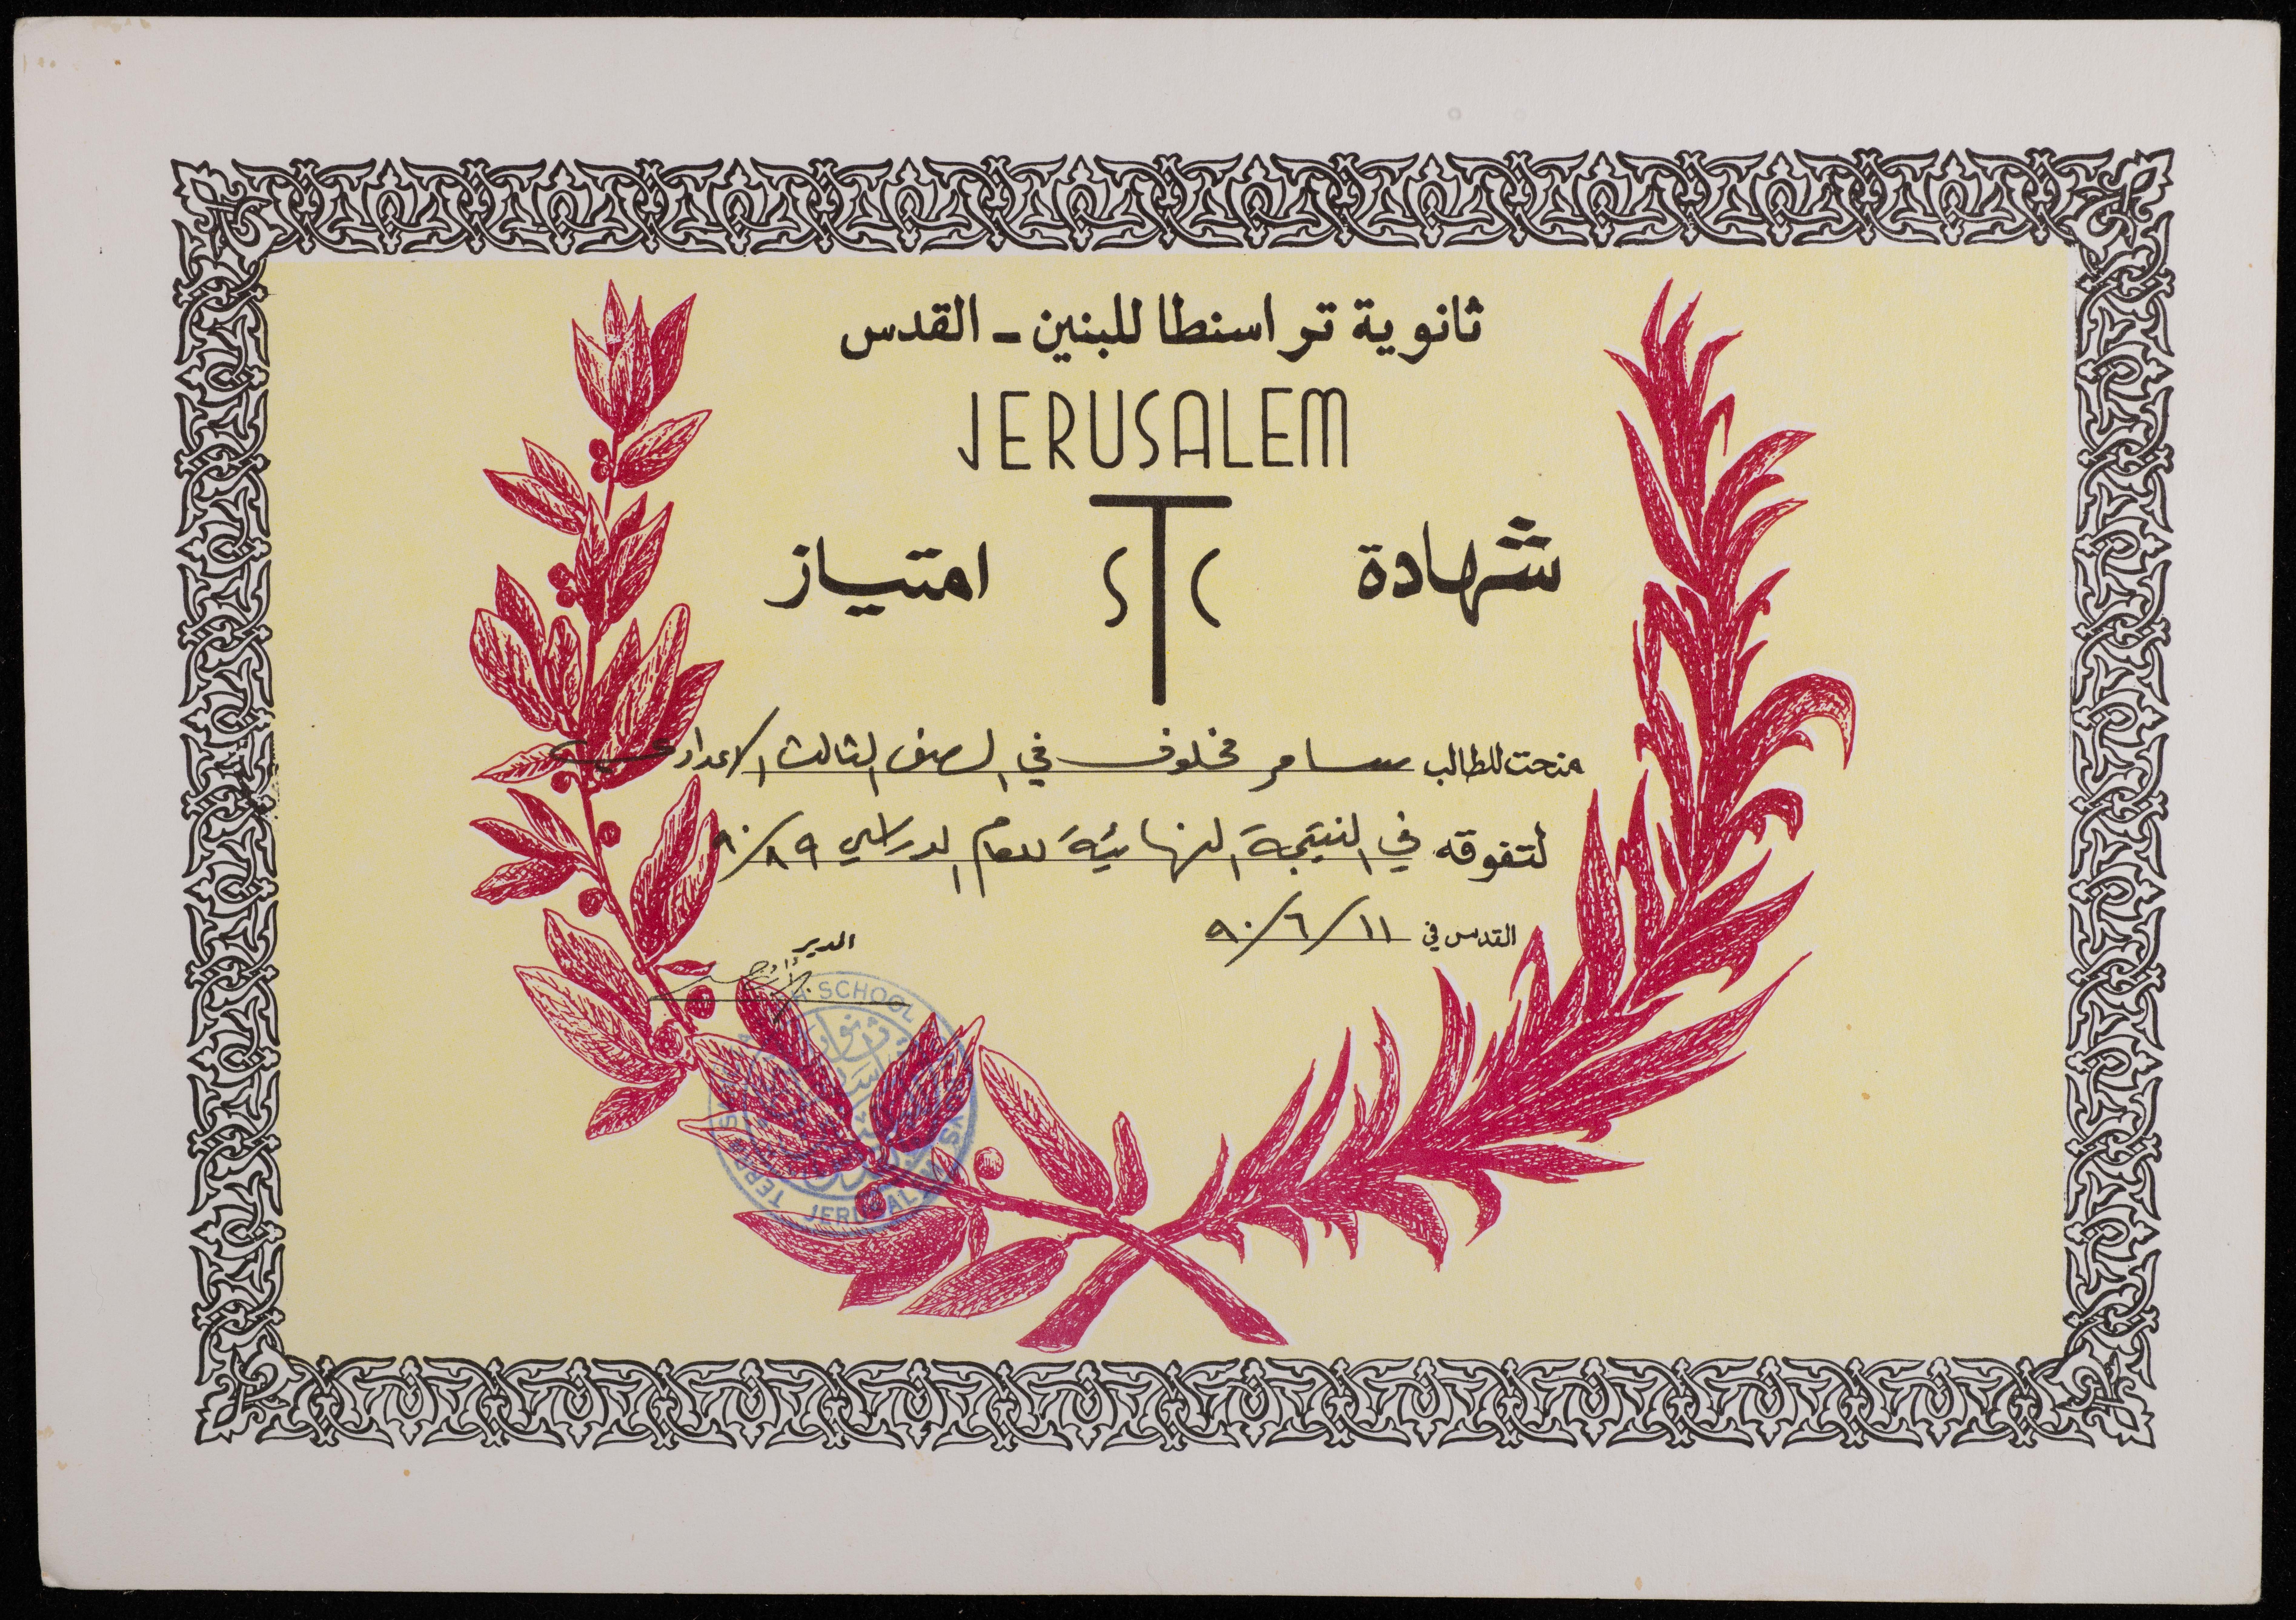 ثانوية تراسنطا للبنين - القدس
JERUSALEM
شهادة STC امتياز
منحت للطالب سامر مخلوف في الصف الثالث الاعدادي
لتفوقه في النتيجة النهائية للعام الدراسي ٨٩/٩٠
القدس في ١١/٦/٩٠
المدير
TERRA SANCTA HIGH SCHOOL
JERUSALEM